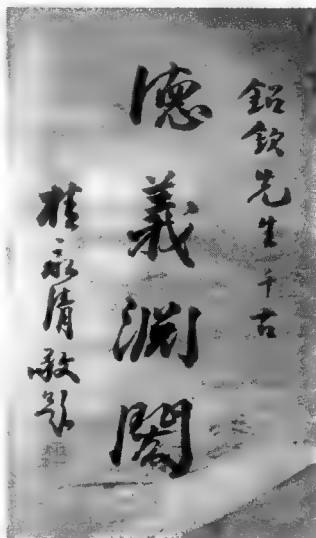 鉊欽先生千古
德義淵閎
桂永清敬題